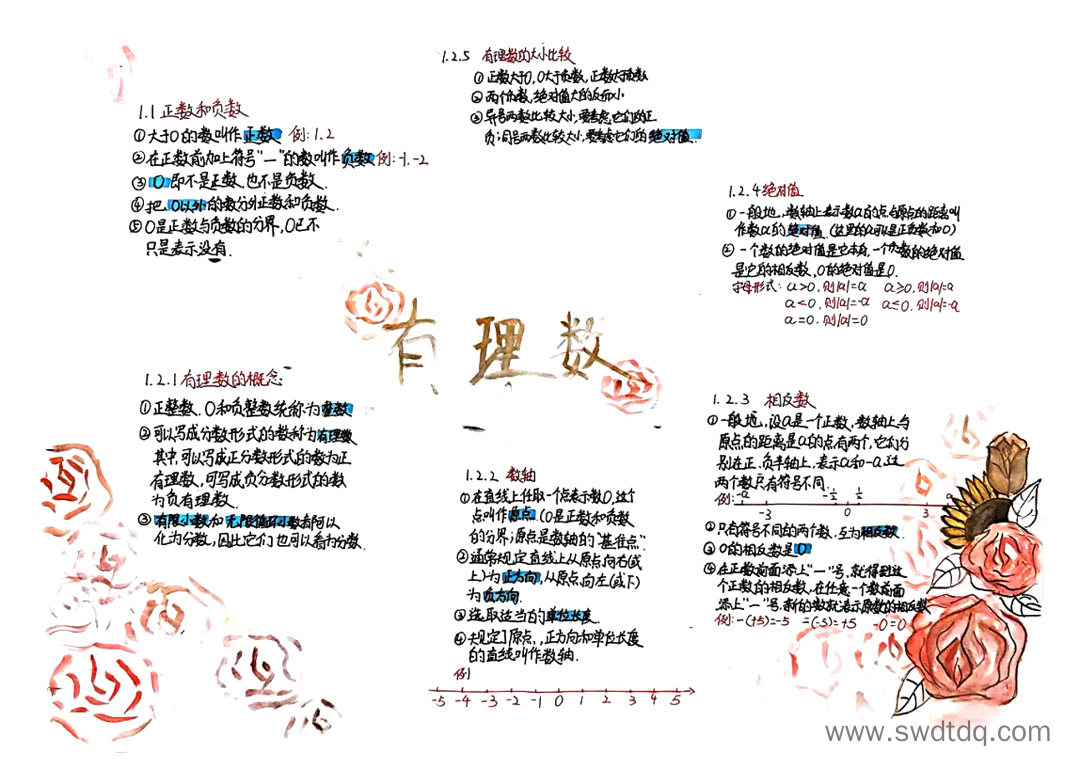 1.1 正数和负数
①大于0的数叫作正数 例:1.2
②在正数前加上符号“—”的数叫作负数 例:-1.-2
③ 0 即不是正数,也不是负数.
④把,0以外的数分外正数和负数.
⑤0是正数与负数的分界,0已不
只是表示没有.
1.2.5 有理数的大小比较
①正数大于0,0大于负数,正数大于负数
②两个负数,绝对值大的反而小
③异号两数比较大小,要考虑它们的正
负;同号两数比较大小,要考虑它们的绝对值.
1.2.4 绝对值
①一般地,数轴上表示数a的点与原点的距离叫
作数a的绝对值.(这里的a可以是正负数和0)
②一个数的绝对值是它本身,一个负数的绝对值
是它的相反数,0的绝对值是0.
字母形式: a>0.则|a|=a a≥0.则|a|=a
a<0.则|a|=-a a≤0.则|a|=-a
a=0.则|a|=0
有理数
1.2.1 有理数的概念
①正整数、0和负整数统称为整数
②可以写成分数形式的数称为有理数
其中,可以写成正分数形式的数为正
有理数,可写成负分数形式的数
为负有理数.
③有限小数和无限循环小数都可以
化为分数,因此它们也可以看为分数.
1.2.2 数轴
①在直线上任取一个点表示数0,这个
点叫作原点.(0是正数和负数
的分界;原点是数轴的“基准点”
②通常规定直线上从原点向右(或
上)为正方向,从原点向左(或下)
为负方向.
③选取适当的单位长度
④规定了原点,正方向和单位长度
的直线叫作数轴.
例
-5 -4 -3 -2 -1 0 1 2 3 4 5
1.2.3 相反数
①一般地,设a是一个正数,数轴上与
原点的距离是a的点有两个,它们分
别在正、负半轴上,表示a和-a.这
两个数只有符号不同.
例: -a -1/2 1/2
-3 0 3
②只有符号不同的两个数,互为相反数.
③0的相反数是0
④在正数前面添上“—”号,就得到这
个正数的相反数,在任意一个数前面
添上“—”号,新的数就表示原数的相反数
例:-(+5)=-5 =(-5)=+5 -0=0
www.swdtdq.com